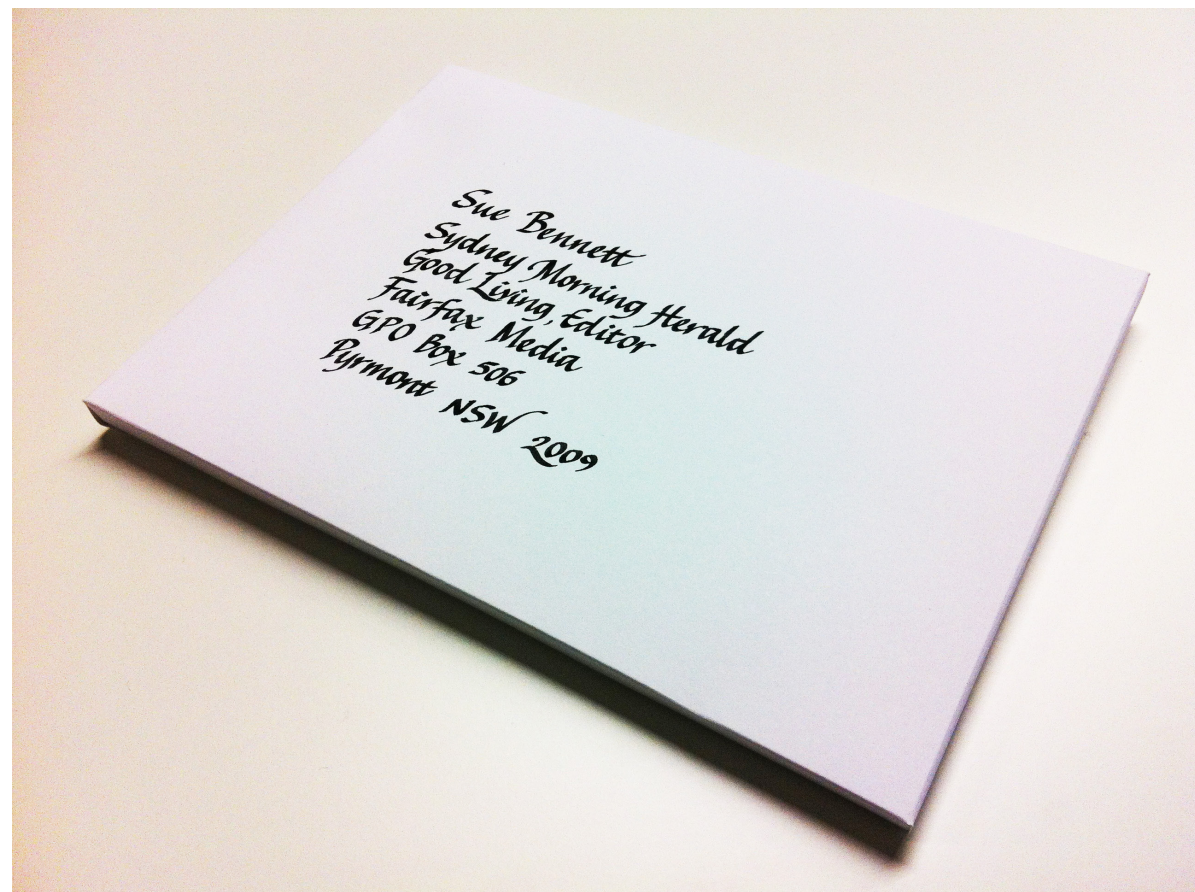 Sue Bennett
Sydney Morning Herald
Good Living, Editor
Fairfax Media
GPO Box 506
Pyrmont NSW 2009